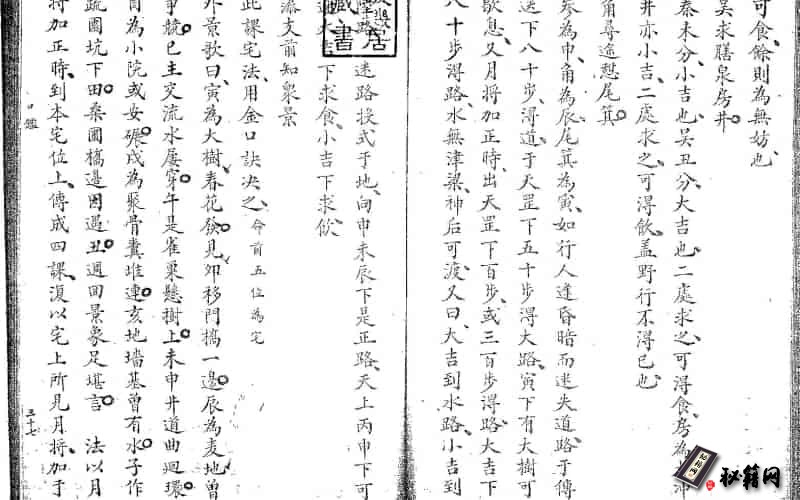 可食餘則為無妨也
吴求膳泉房井
秦未分小吉也吴丑分大吉也二處求之可得食房為
井亦小吉二處求之可得飲盖野行不得已也
角尋迤愁尾箕
参為申角為辰尾箕為寅如行人逢昏暗而迷失道路于傳
送下八十步得道于天罡下五十步得大路寅下有大樹可
歇息又月將加正時出天罡下百步或三百步得路大吉下
八十步得路水無津梁神后可渡又曰大吉到水路小吉到
迷路投式于地向申未辰下是正路天上丙申下可
下求食小吉下求飲
文前知衆景
此課宅法用金口訣决之命前五位為宅
外景歌曰寅為大樹春花發見夘移門橋一邊辰為麦地曽
争競巳主交流水屢穿午是雀巢懸樹上未申井道曲迴環
酉為小院或安碾戌為聚骨糞堆連亥地墙基曽有水子作
疏園坑下田桑園橋邊因過丑週回景象足堪言 法以月
將加正時到本宅位上傳成四課復以宅上所見月將加于
三十七
藏書
秘籍网